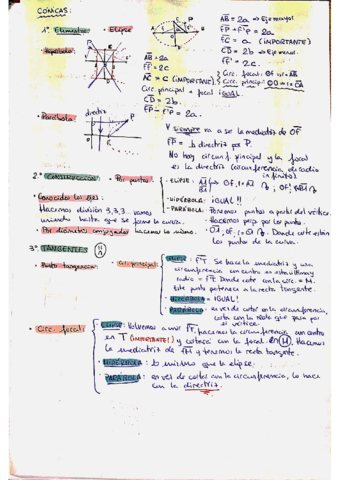 CÓNICAS:
1º. Elementos • Elipse
AB = 2a → Eje mayor
FP + F'P = 2a
FC = a (IMPORTANTE)
CD = 2b → Eje menor.
FF' = 2c.
• Hipérbola:
AB = 2a
FF' = 2c
AC = c (IMPORTANTE)
Circ. focal:
Circ. principal:
Circ principal + focal: IGUAL.
CD = 2b.
FP - F'P = 2a.
• Parábola:
directriz
V siempre va a ser la mediatriz de OF
FP = ⊥ directriz por P.
No hay circunf. principal y la focal
es la directriz (circunferencia de radio
infinito)
2º
• Por puntos.
- ELIPSE:
- HIPÉRBOLA: IGUAL!!
- PARÁBOLA: Ponemos puntos a partir del vértice.
Hacemos perp por los puntos.
Donde corte están
los puntos de la curva.
• Conocidos los ejes:
Hacemos división 3,3,3... vamos
uniendo hasta que se forme la curva.
• Por diámetros conjugados hacemos lo mismo.
3º. TANGENTES
• Punto tangencia
• Cir. principal
ELIPSE: FT. Se hace la mediatriz y una
circunferencia con centro en esta última y
radio = FT. Donde corte con la circ = M.
Este punto pertenece a la recta tangente.
HIPÉRBOLA = IGUAL!
PARÁBOLA = en vez de cortar en la circunferencia,
con la recta que pasa por
el vértice.
• Circ. focal:
ELIPSE: Volvemos a unir FT, hacemos la circunferencia con centro
en T (IMPORTANTE!) y cortará con la focal en M. Hacemos
la mediatriz de FM y tenemos la recta tangente.
HIPÉRBOLA: lo mismo que la elipse.
PARÁBOLA: en vez de cortar con la circunferencia, lo hace
con la directriz.